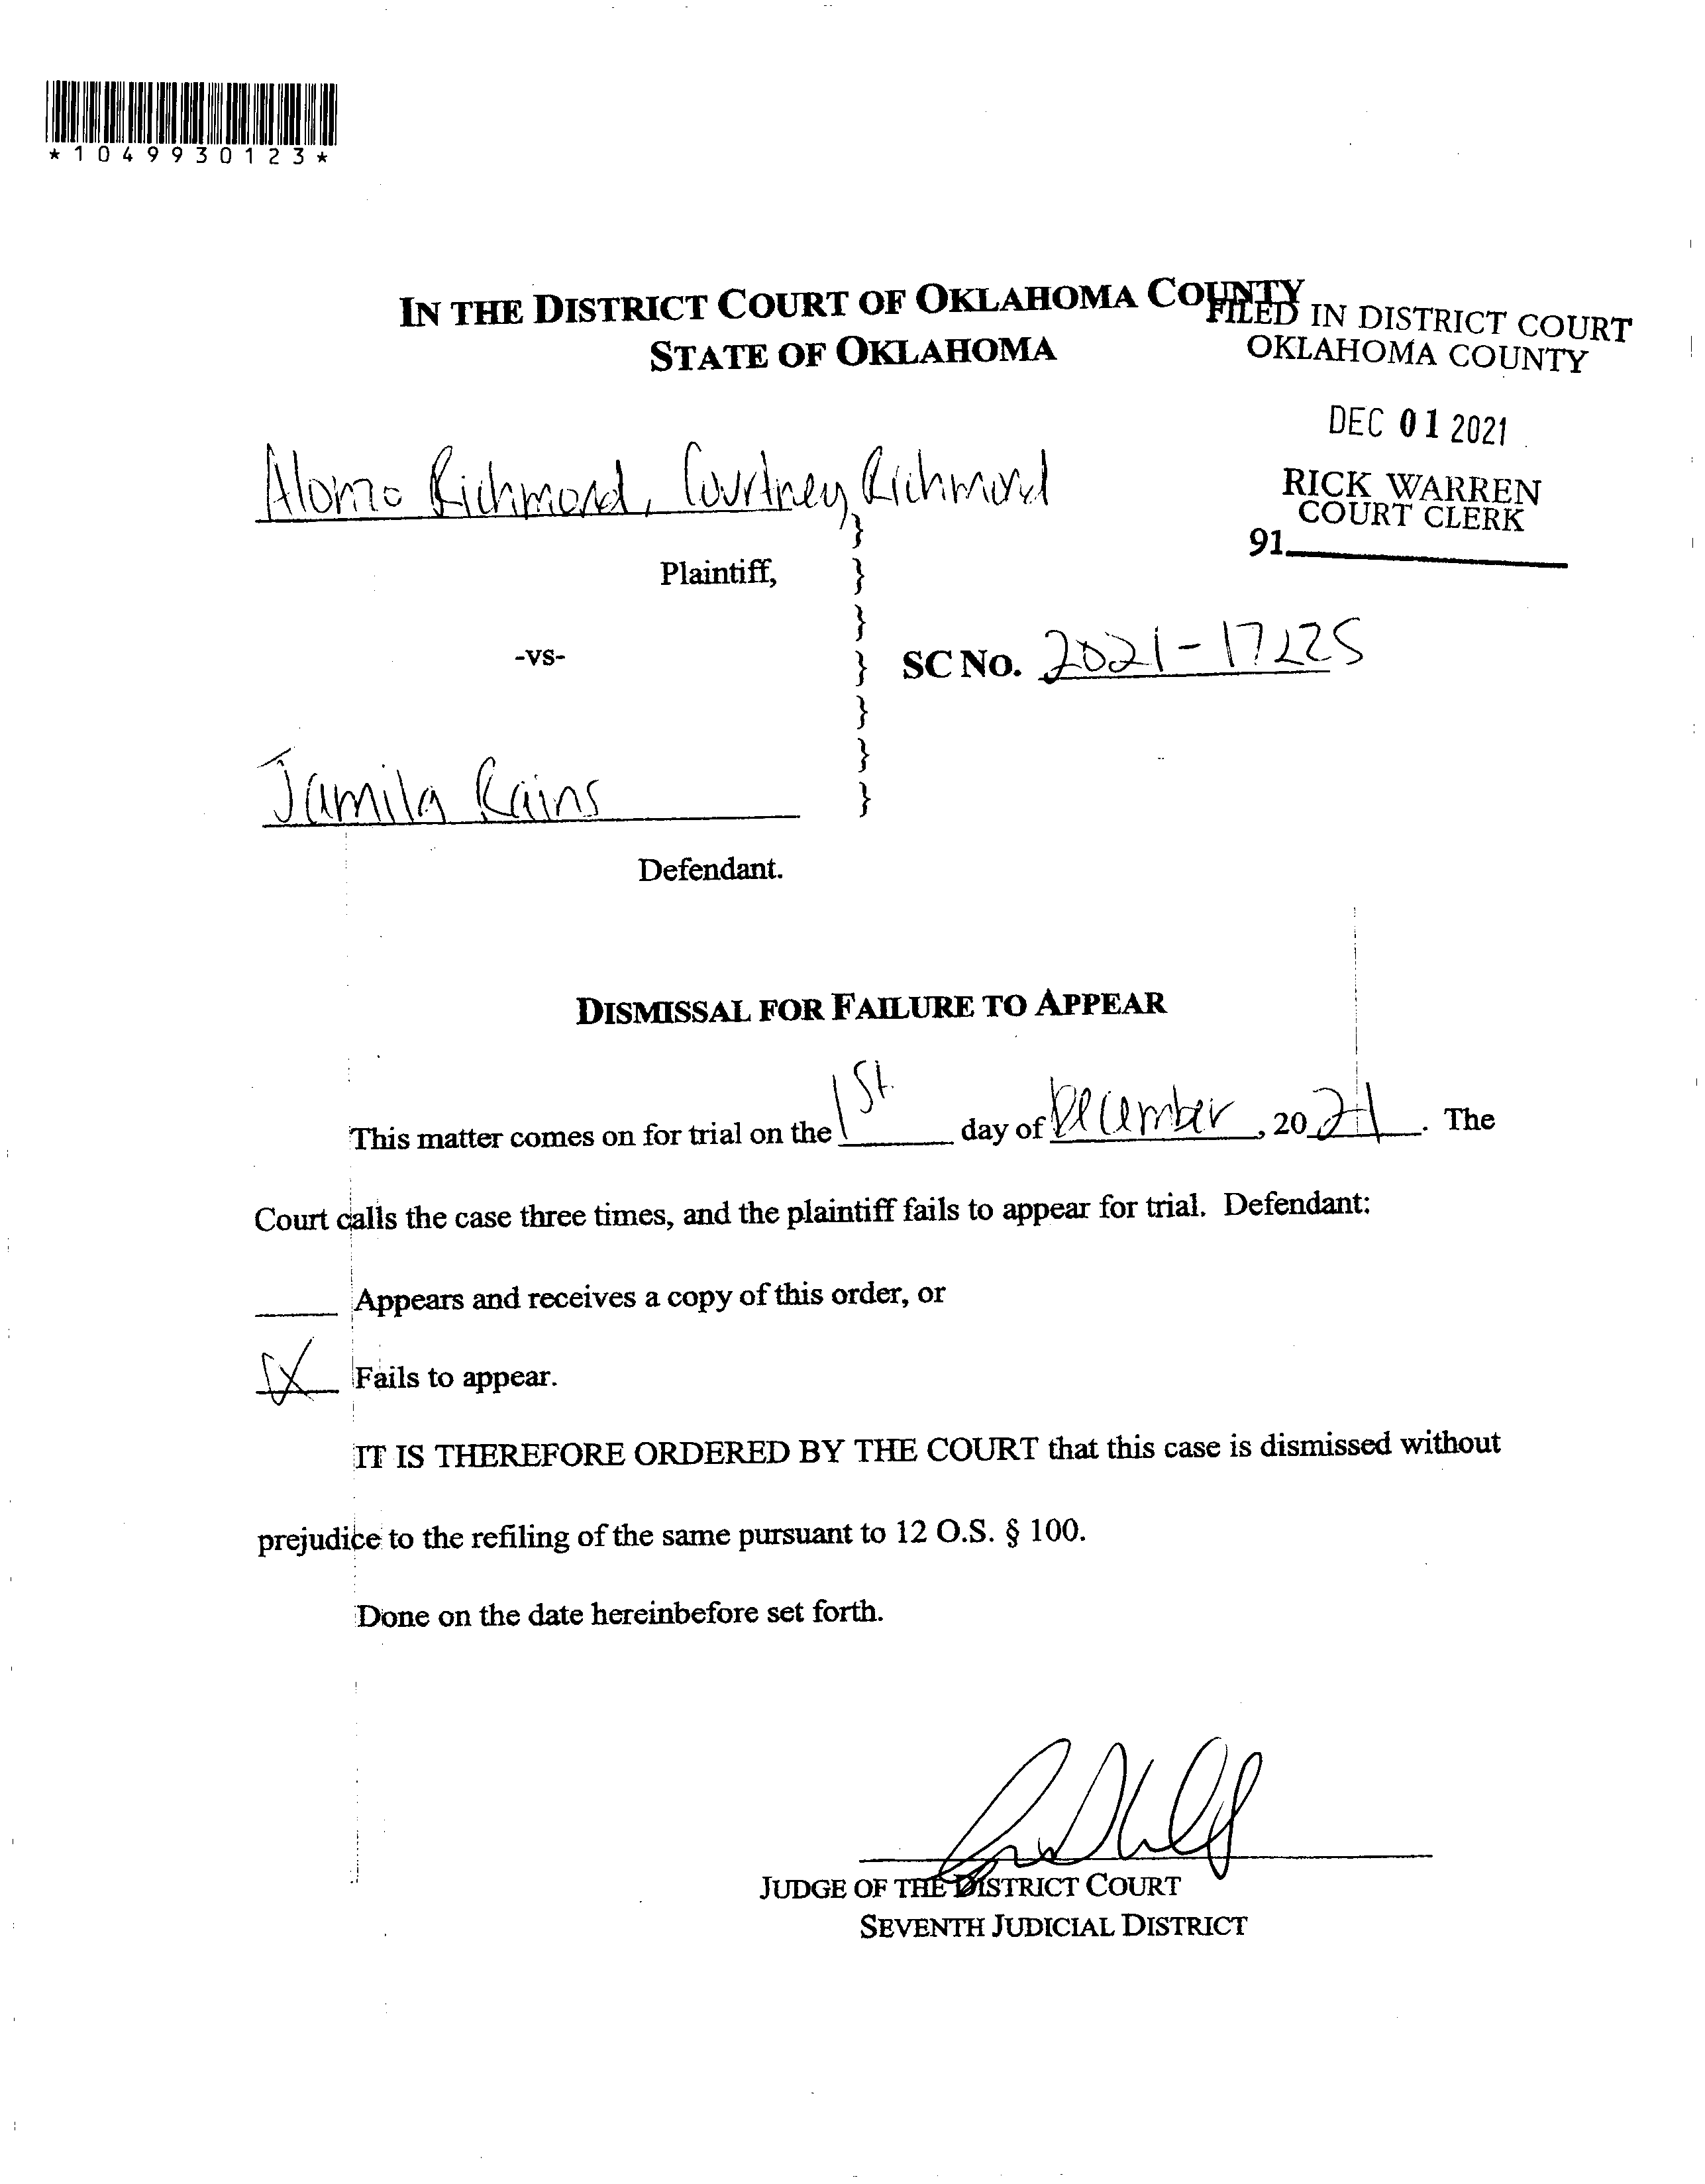 *1049930123*
IN THE DISTRICT COURT OF OKLAHOMA COUNTY
STATE OF OKLAHOMA
FILED IN DISTRICT COURT
OKLAHOMA COUNTY
DEC 01 2021
RICK WARREN
COURT CLERK
91
Richmond, Courtney Richmond
Plaintiff,
-vs-
SC No. 2021-17225
Jamila Rains
Defendant.
DISMISSAL FOR FAILURE TO APPEAR
This matter comes on for trial on the 1st day of December, 2021. The
Court calls the case three times, and the plaintiff fails to appear for trial. Defendant:
Appears and receives a copy of this order, or
X Fails to appear.
IT IS THEREFORE ORDERED BY THE COURT that this case is dismissed without
prejudice to the refiling of the same pursuant to 12 O.S. § 100.
Done on the date hereinbefore set forth.
JUDGE OF THE DISTRICT COURT
SEVENTH JUDICIAL DISTRICT